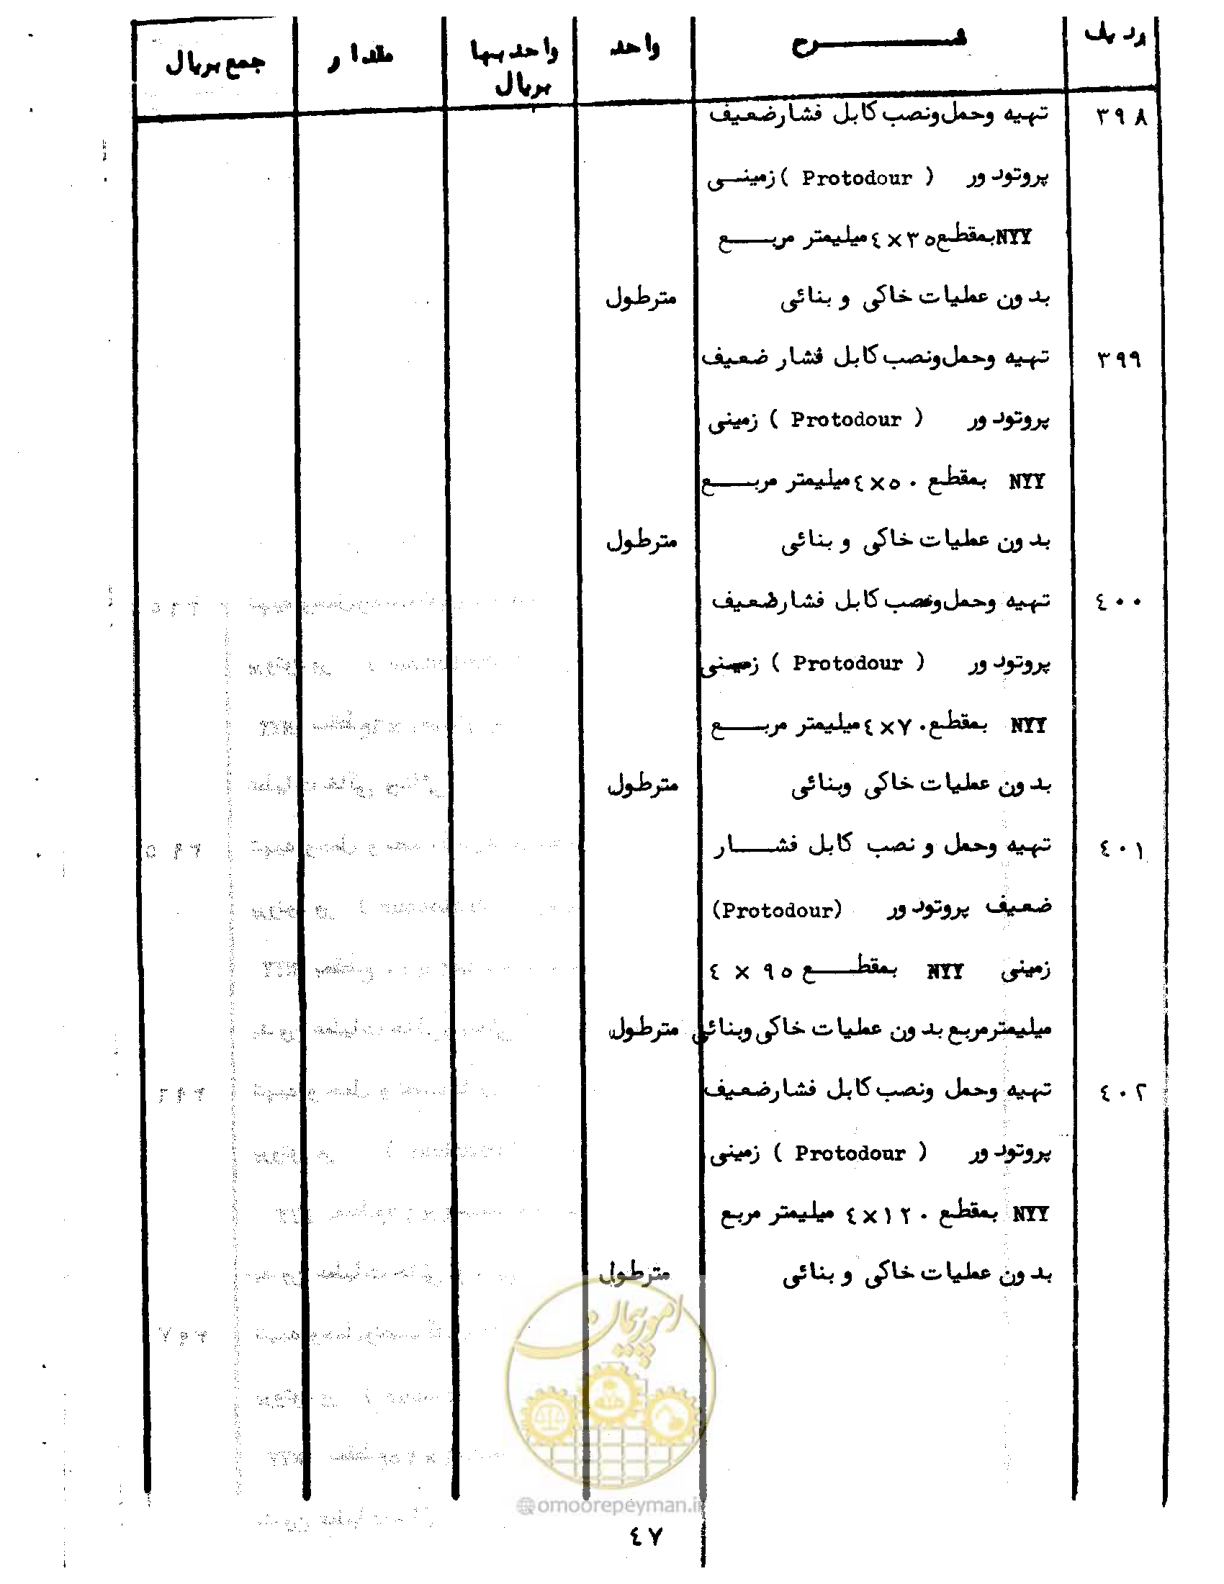 ردیف شرح واحد واحدبها بریال مقدار جمع بریال
۳۹۸ تهیه وحمل ونصب کابل فشارضعیف
پروتودور ( Protodour ) زمینی
NYY بمقطع ۳۵×٤ میلیمتر مربع
بدون عملیات خاکی و بنائی مترطول
۳۹۹ تهیه وحمل ونصب کابل فشار ضعیف
پروتودور ( Protodour ) زمینی
NYY بمقطع ۵۰×٤ میلیمتر مربع
بدون عملیات خاکی و بنائی مترطول
٤۰۰ تهیه وحمل ونصب کابل فشارضعیف
پروتودور ( Protodour ) زمینی
NYY بمقطع ۷۰×٤ میلیمتر مربع
بدون عملیات خاکی وبنائی مترطول
٤۰۱ تهیه وحمل و نصب کابل فشار
ضعیف پروتودور (Protodour)
زمینی NYY بمقطع ۹۵ × ٤
میلیمترمربع بدون عملیات خاکی وبنائی مترطول
٤۰۲ تهیه وحمل ونصب کابل فشارضعیف
پروتودور ( Protodour ) زمینی
NYY بمقطع ۱۲۰×٤ میلیمتر مربع
بدون عملیات خاکی و بنائی مترطول
امور پیمان
omoorepeyman.ir
٤۷